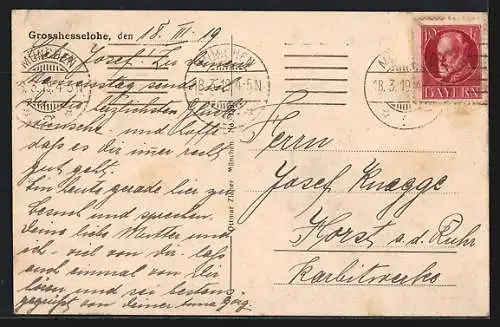 Grosshesselohe, den 18. III. 19
Lieber Josef! Zu deinem
Namenstag sende ich
die herzlichsten Glück-
wünsche und hoffe
daß es Dir immer recht
gut geht.
Bin heute gerade hier zu
Besuch und sprechen
Deine liebe Mutter und
ich viel von Dir. Laß
auch einmal von Dir
hören und sei bestens
gegrüßt von Deiner
Ottmar Zieher, München
MÜNCHEN
18. 3. 19 4-5 N
2
MÜNCHEN
18. 3. 19 4-5 N
MÜNCHEN
18. 3. 19
10 10
BAYERN
Herrn
Josef Knegge
Horst a. d. Ruhr
Karbitwerke